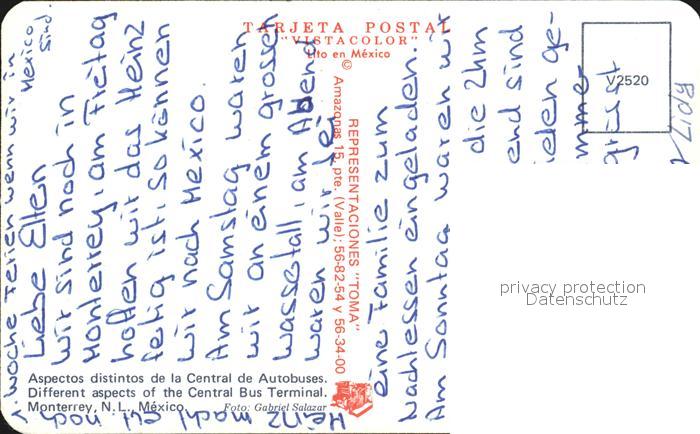 TARJETA POSTAL
"VISTACOLOR"
Hecho en México
©
REPRESENTACIONES "TOMA"
Amazonas 15 pte. (Valle); 56-82-54 y 56-34-00
V2520
Aspectos distintos de la Central de Autobuses.
Different aspects of the Central Bus Terminal.
Monterrey, N.L., México.
Foto: Gabriel Salazar
Liebe Eltern
wir sind noch in
Monterrey, am Freitag
hoffen wir das Heinz
fertig ist. So können
wir nach Mexico.
Am Samstag waren
wir an einem grossen
Wasserfall, am Abend
waren wir bei
eine Familie zum
Nachtessen eingeladen.
Am Sonntag waren wir
die
end sind
ielen ge-
mmer
grüsst
Heinz macht evt noch
1. Woche Ferien wenn wir in
Mexico
sind.
privacy protection
Datenschutz